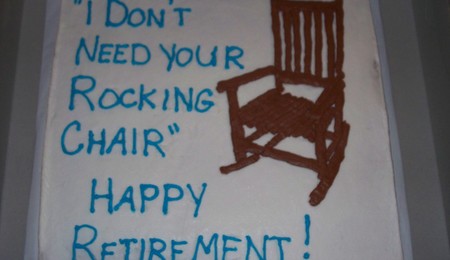 "I DON'T
NEED YOUR
ROCKING
CHAIR"
HAPPY
RETIREMENT!